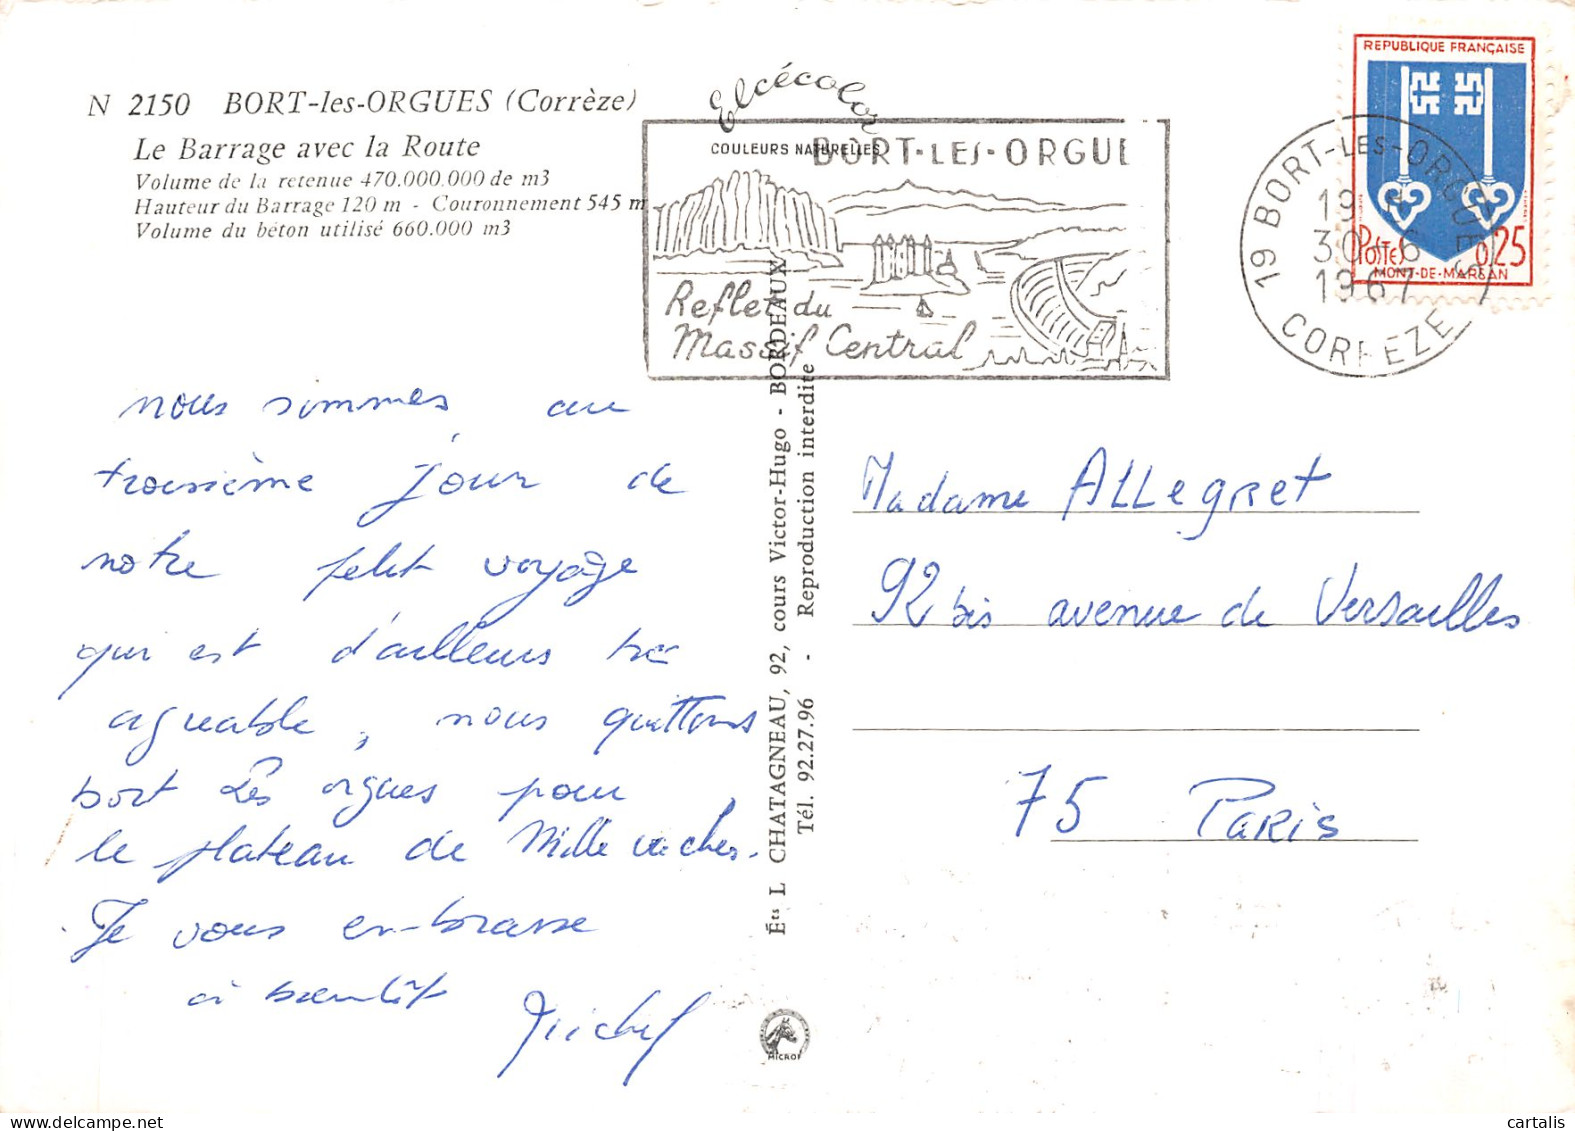 N 2150 BORT-les-ORGUES (Corrèze)
Le Barrage avec la Route
Volume de la retenue 470.000.000 de m3
Hauteur du Barrage 120 m - Couronnement 545 m
Volume du béton utilisé 660.000 m3
Elcécolor
COULEURS NATURELLES
BORT-LES-ORGUE
Reflet du
Massif Central
19 BORT-LES-ORGUES
19
30-6
1967
CORREZE
REPUBLIQUE FRANÇAISE
POSTES 0,25
MONT-DE-MARSAN
nous sommes au
troisième jour de
notre petit voyage
qui est d'ailleurs très
agréable, nous quittons
bort Les orgues pour
le plateau de Mille vaches.
Je vous embrasse
à bientôt
Michel
Éts L CHATAGNEAU, 92, cours Victor-Hugo - BORDEAUX
Tél. 92.27.96 - Reproduction interdite
Madame ALLegret
92 bis avenue de Versailles
75 Paris
MICROF
cartalis